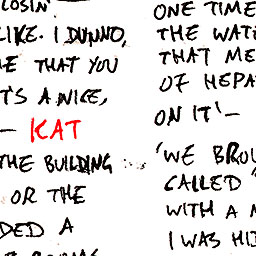 LOSIN'
LIKE. I DUNNO,
THAT YOU
T'S A NICE,
– KAT
THE BUILDING
OR THE
DED A
ONE TIME
THE WAT
THAT ME
OF HEPA
ON IT' –
'WE BROU
CALLED "
WITH A
I WAS HI